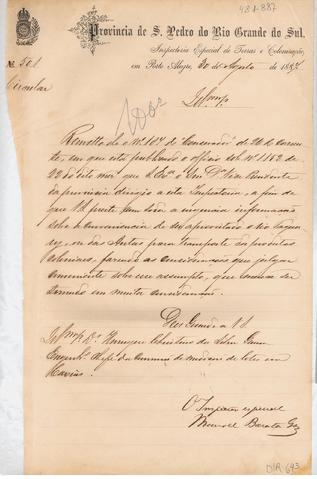 481-887
Provincia de S. Pedro do Rio Grande do Sul.
Inspectoria Especial de Terras e Colonisação,
em Porto Alegre, 30 de Agosto de 1887
Nº 501
Circular
Illmo Snr
Remetto-lhe o Nº 194 do "Conservador" de 26 do corrente, em que está publicado o officio sob Nº 1162 de
22 do mez que S. Exª o Snr Dr Vice Presidente
da provincia dirigio a esta Inspectoria, a fim de
que VS preste com toda a urgencia informações
sobre a conveniencia de ser aproveitado o rio Taquary, ou das Antas para transporte dos productos
coloniaes, fazendo as considerações que julgar
conveniente sobre esse assumpto, que
tomadas em muita consideração.
Deus Guarde a VS
Illmo Snr Dr
Engenheiro Chefe da Commissão de medição de lotes em
Caxias.
O Inspector especial
Manoel Barata Góes
DIR 693